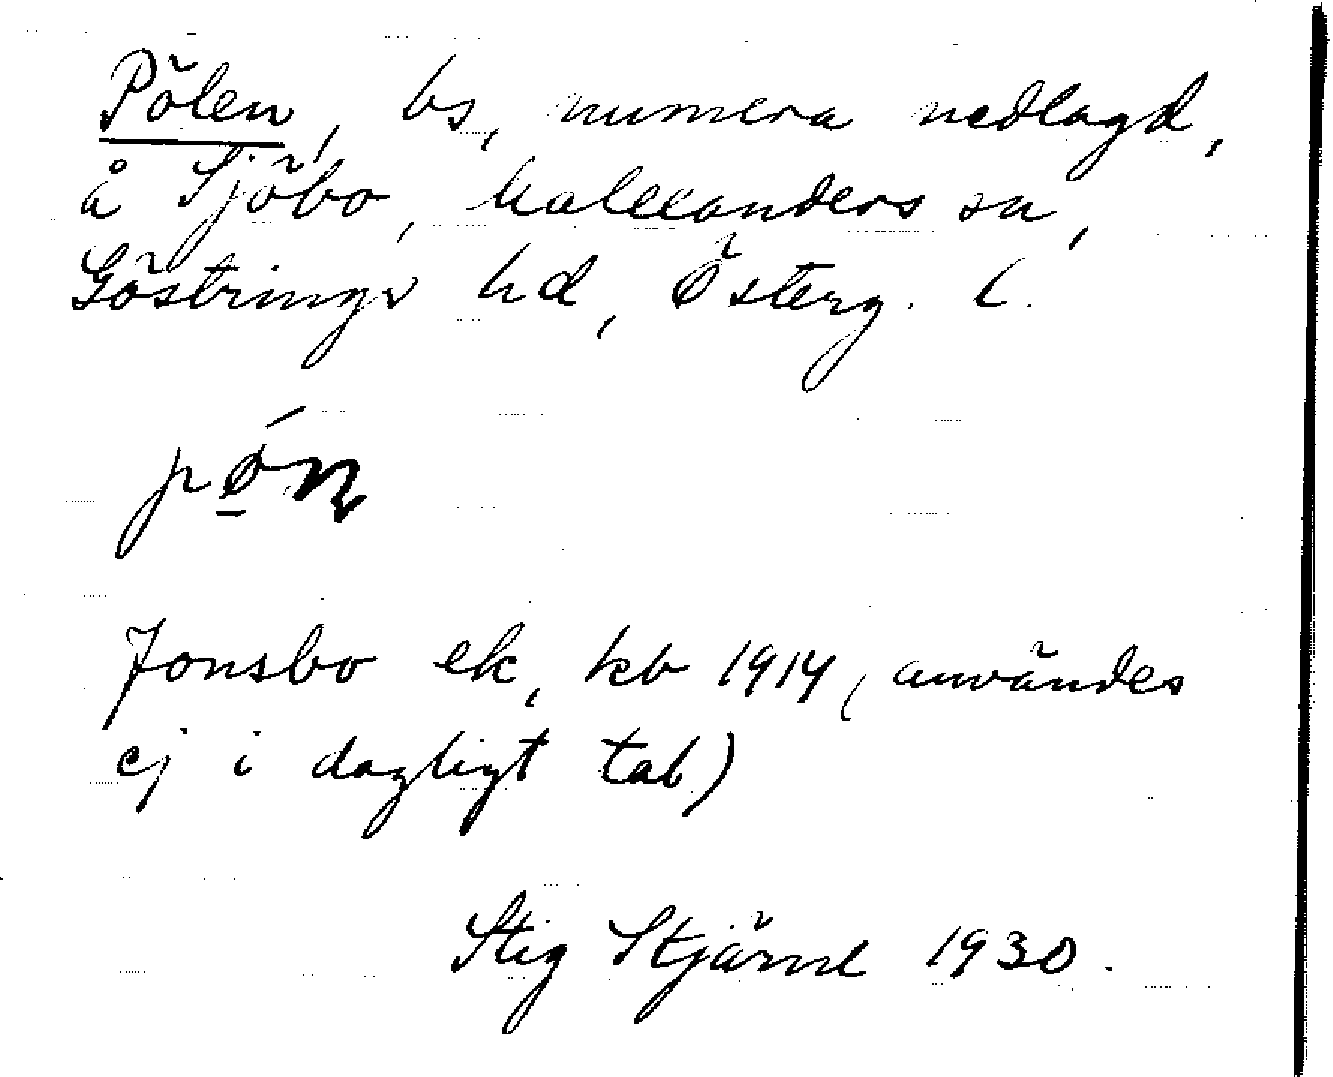 Pölen, bs, numera nedlagd,
å Sjöbo, Malexanders sn,
Göstrings hd, Österg. l.
pǿn
Jonsbo ek, kb 1914 (användes
ej i dagligt tal)
Stig Stjärne 1930.